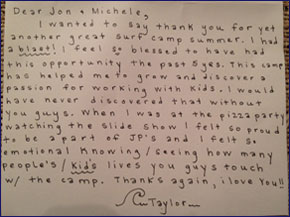 Dear Jon & Michele,
I wanted to say thank you for yet
another great surf camp summer. I had
a blast! I feel so blessed to have had
this opportunity the past 5yrs. This camp
has helped me to grow and discover a
passion for working with kids. I would
have never discovered that without
you guys. When I was at the pizza party
watching the slide show I felt so proud
to be a part of JP's and I felt so
emotional knowing/seeing how many
people's/kid's lives you guys touch
w/ the camp. Thanks again, i love you!!
Taylor